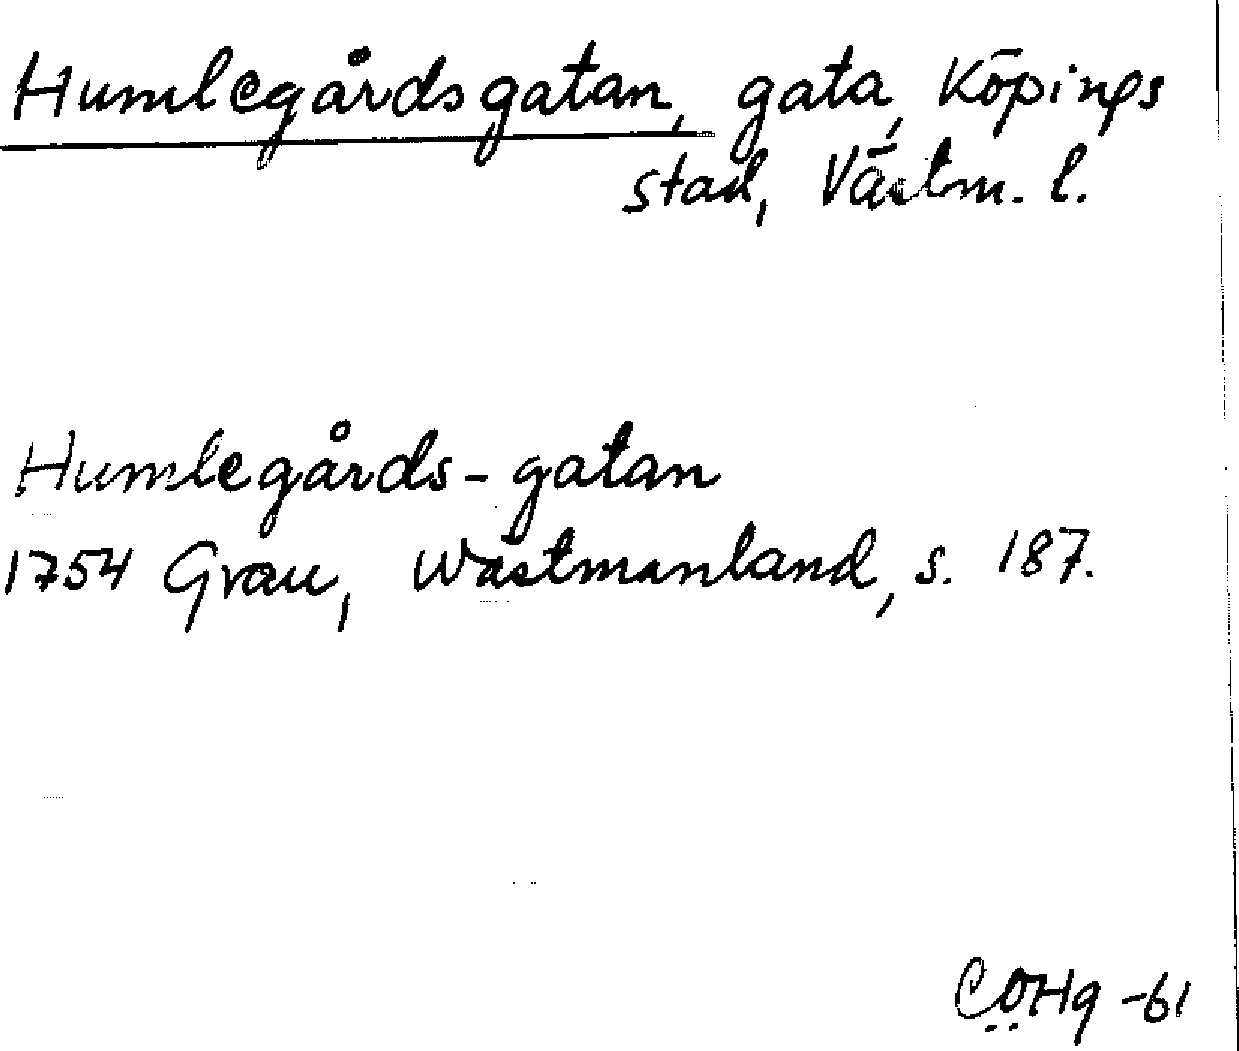 Humlegårdsgatan, gata, Köpings
stad, Västm. l.
Humlegårds-gatan
1754 Grau, Wästmanland, s. 187.
CÖHg -61